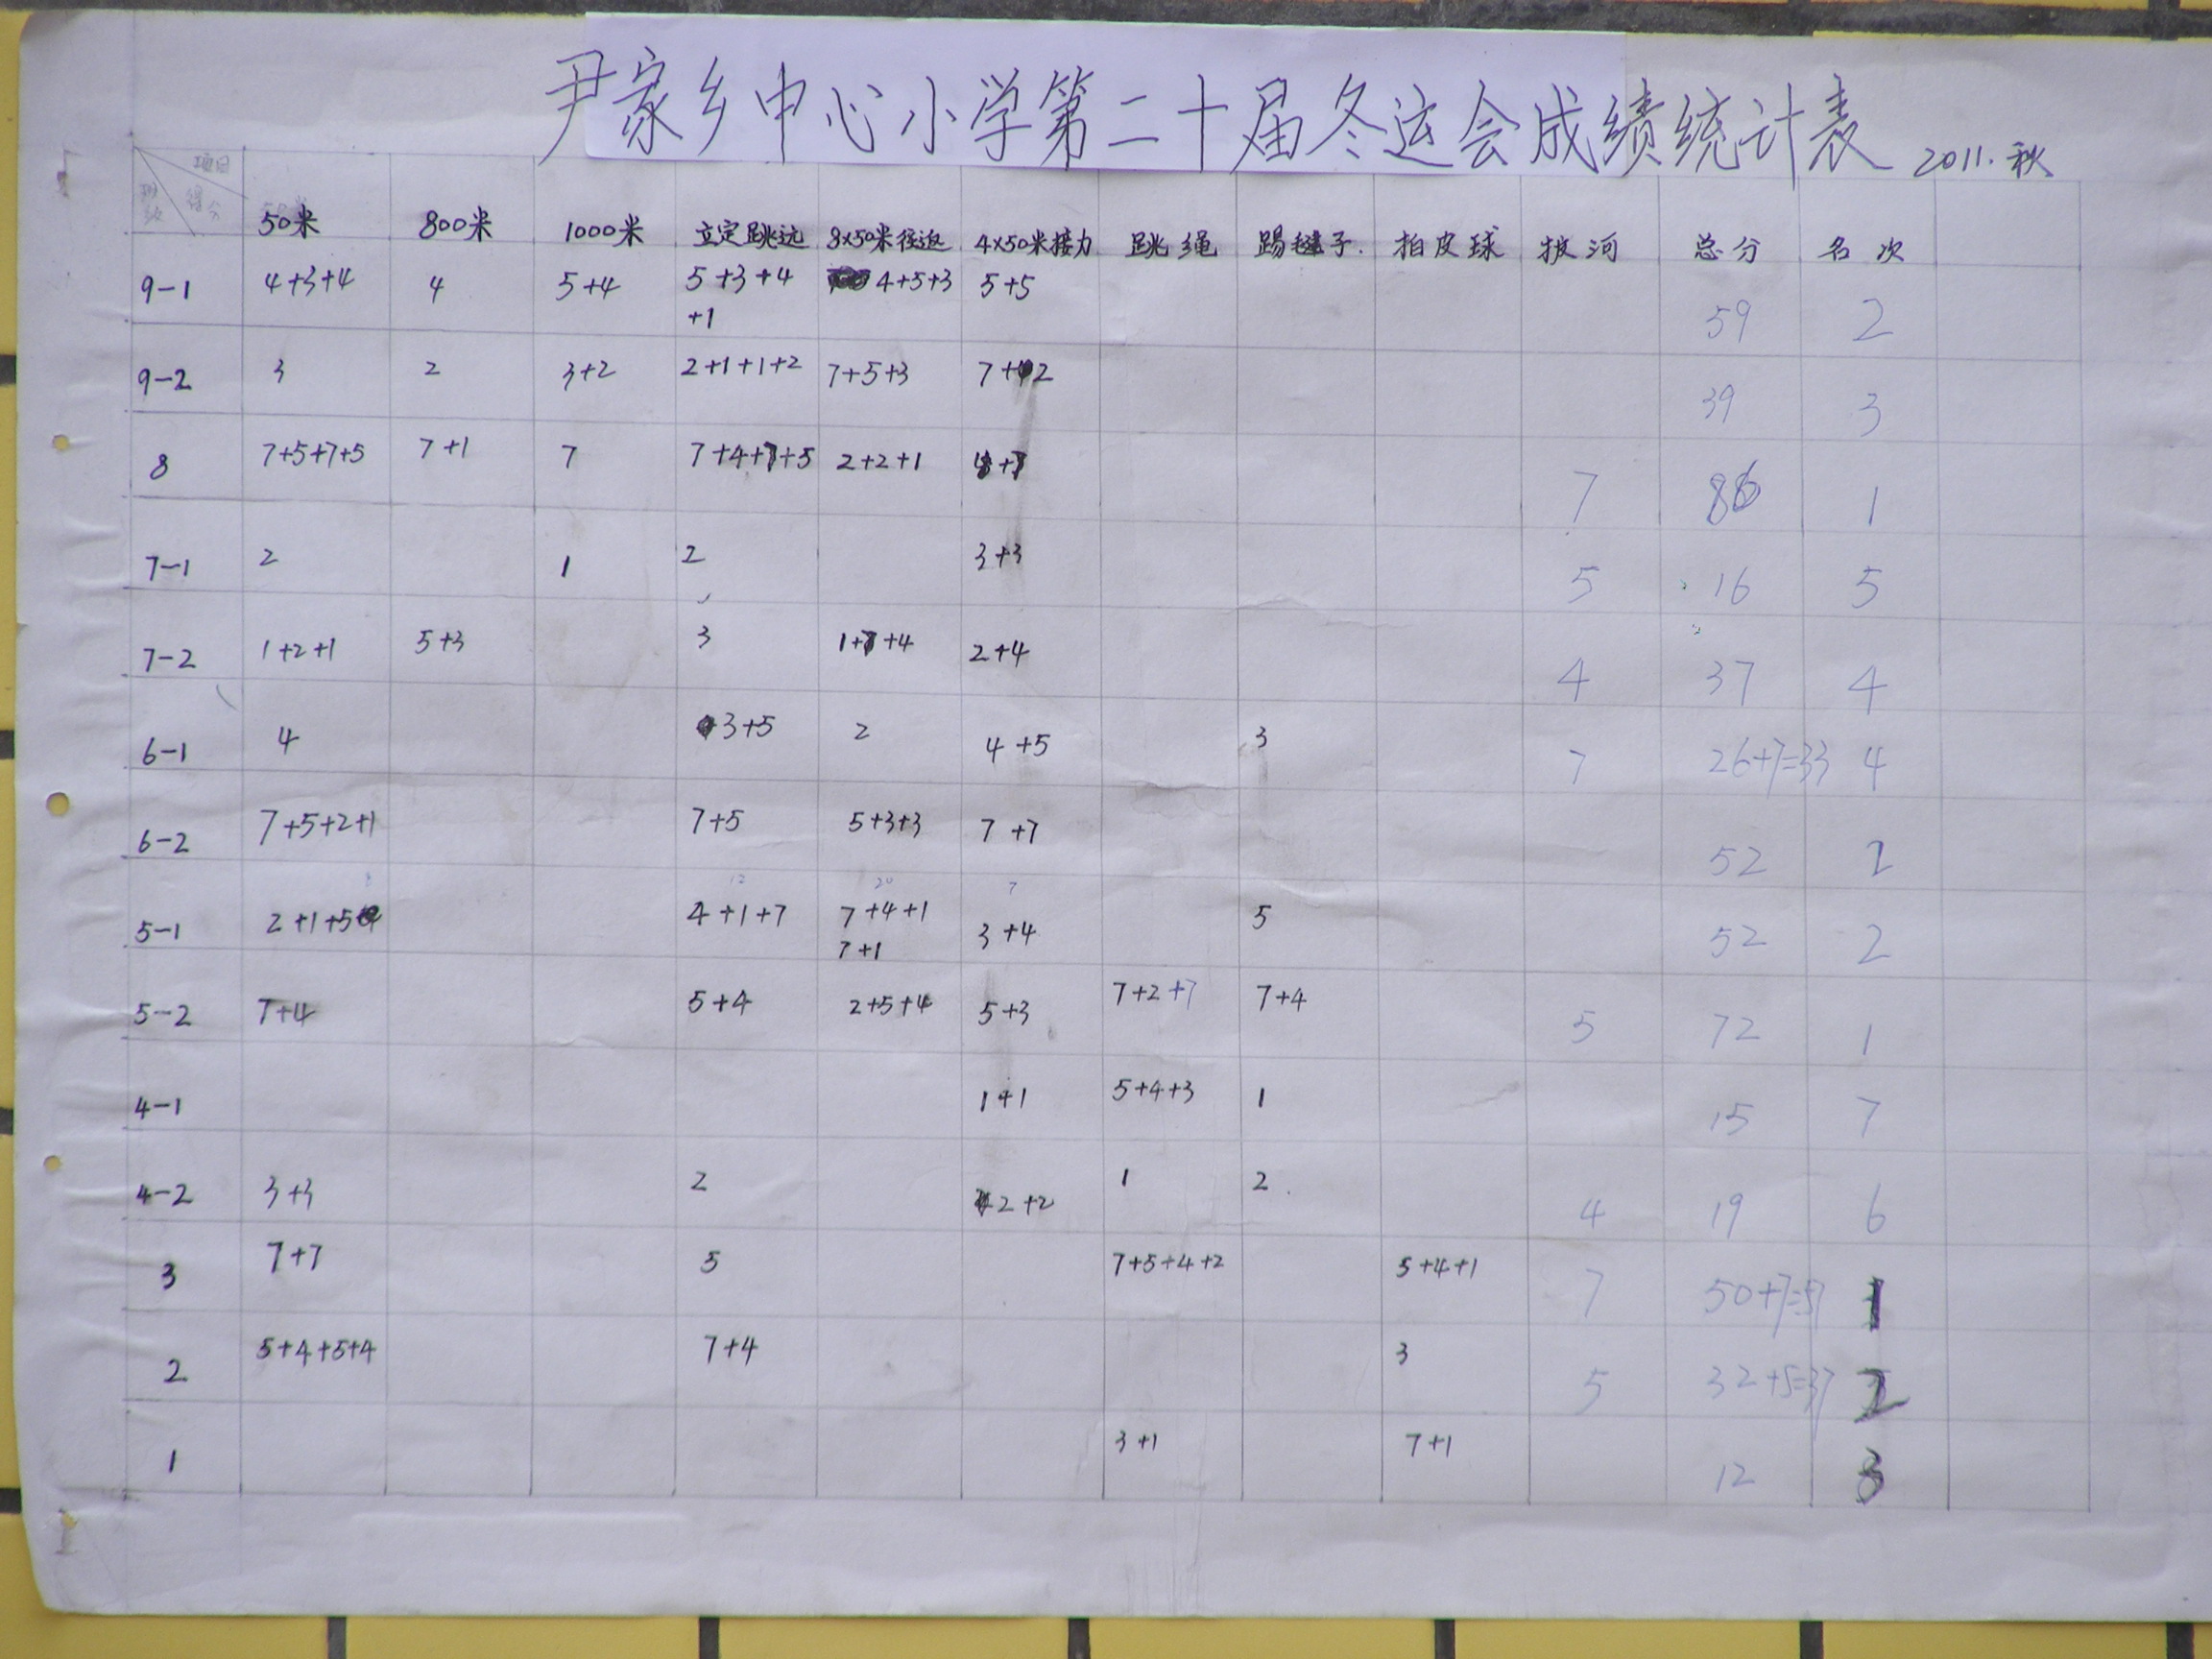 尹家乡中心小学第二十届冬运会成绩统计表 2011.秋
项目 得分 班级 50米 800米 1000米 立定跳远 8x50米往返 4x50米接力 跳绳 踢毽子. 拍皮球 拔河 总分 名次
9-1 4+3+4 4 5+4 5+3+4 4+5+3 5+5 59 2
+1
9-2 3 2 3+2 2+1+1+2 7+5+3 7+2 39 3
8 7+5+7+5 7+1 7 7+4+7+5 2+2+1 7 86 1
7-1 2 1 2 3+3 5 16 5
7-2 1+2+1 5+3 3 1+7+4 2+4 4 37 4
6-1 4 3+5 2 4+5 3 7 26+7=33 4
6-2 7+5+2+1 7+5 5+3+3 7+7 52 2
8 12 20 7
5-1 2+1+5 4+1+7 7+4+1 3+4 5 52 2
7+1
5-2 7+4 5+4 2+5+4 5+3 7+2+7 7+4 5 72 1
4-1 1+1 5+4+3 1 15 7
4-2 3+3 2 2+2 1 2 4 19 6
3 7+7 5 7+5+4+2 5+4+1 7 50+7=57 1
2 5+4+5+4 7+4 3 5 32+5=37 2
1 3+1 7+1 12 3